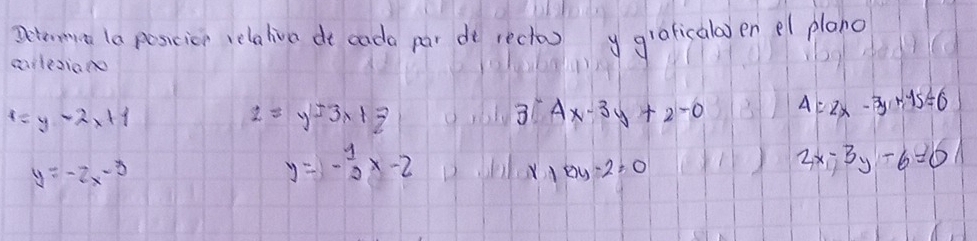 Determina la posición relativa de cada par de rectas y graficalas en el plano
cartesiano
1= y -2x+1 2= y=3x+ 3= 4x-3y+2=0 4=2x -3y
y=-2x-3 y= - x-2 -2=0 2x-3y-6=6